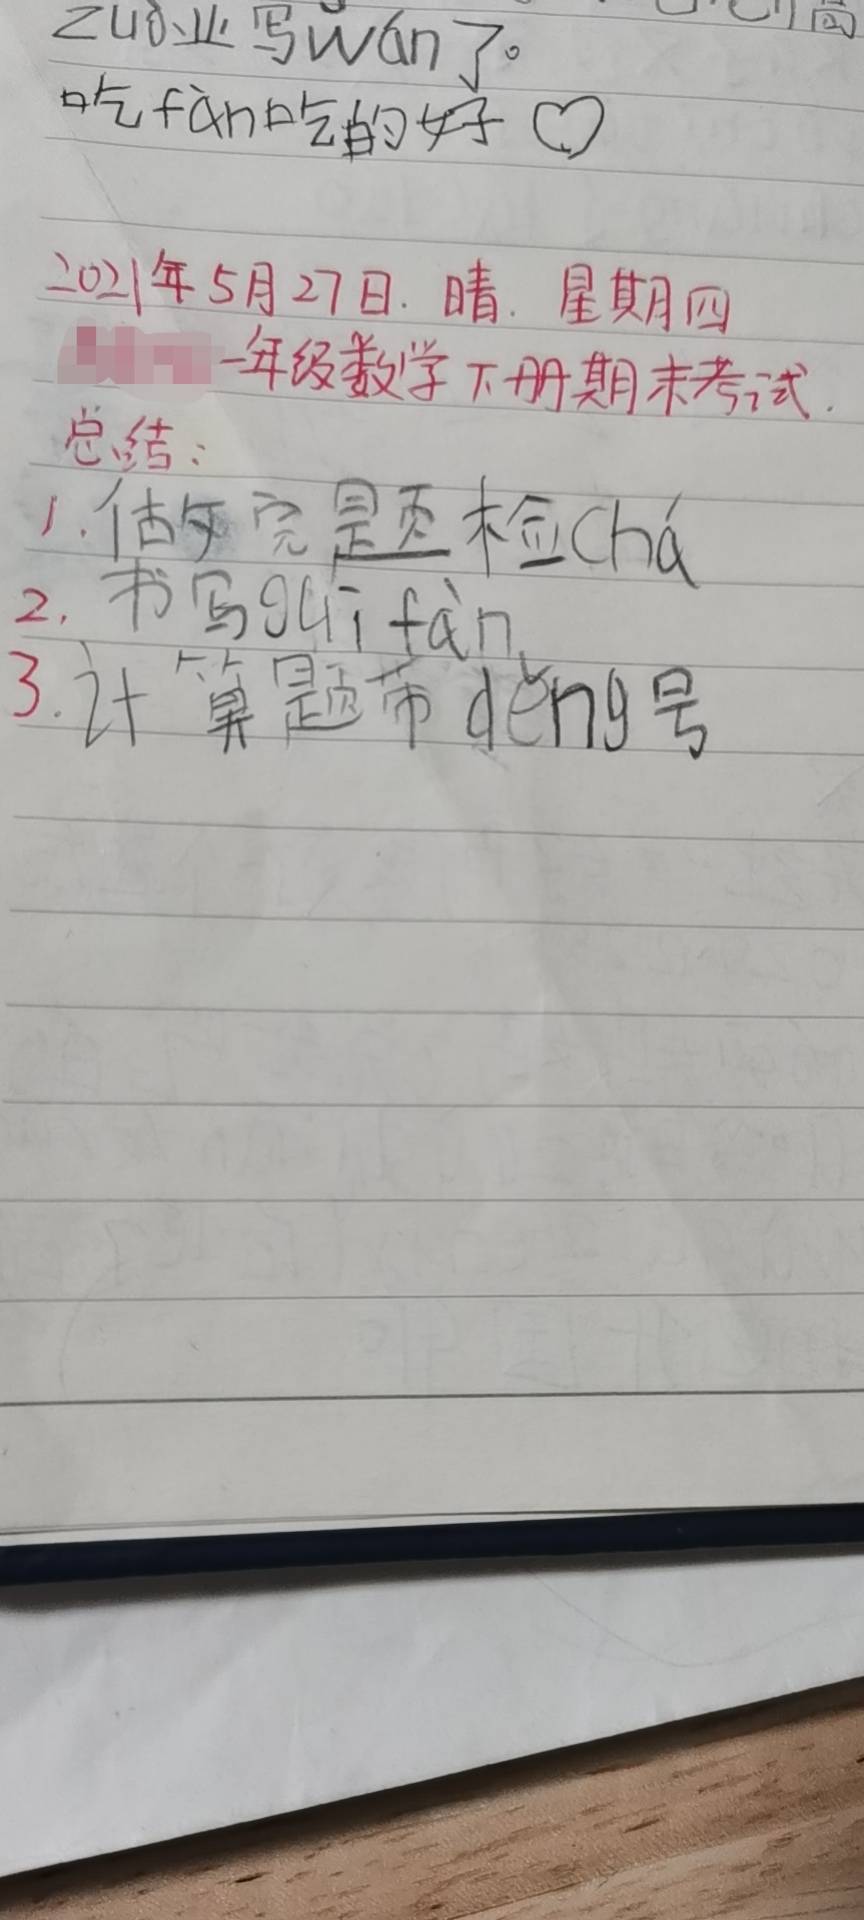 zuò业写wán了。
吃fàn吃的好♡
2021年5月27日. 晴. 星期四
一年级数学下册期末考试.
总结:
1.做完题检chá
2.书写guī fàn
3.计算题带děng号